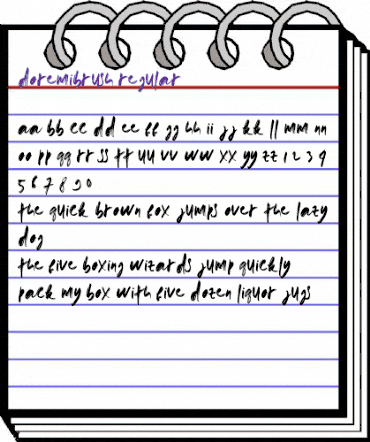 doremibrush regular
aa bb cc dd ee ff gg hh ii jj kk ll mm nn
oo pp qq rr ss tt uu vv ww xx yy zz 1 2 3 4
5 6 7 8 9 0
the quick brown fox jumps over the lazy
dog
the five boxing wizards jump quickly
pack my box with five dozen liquor jugs